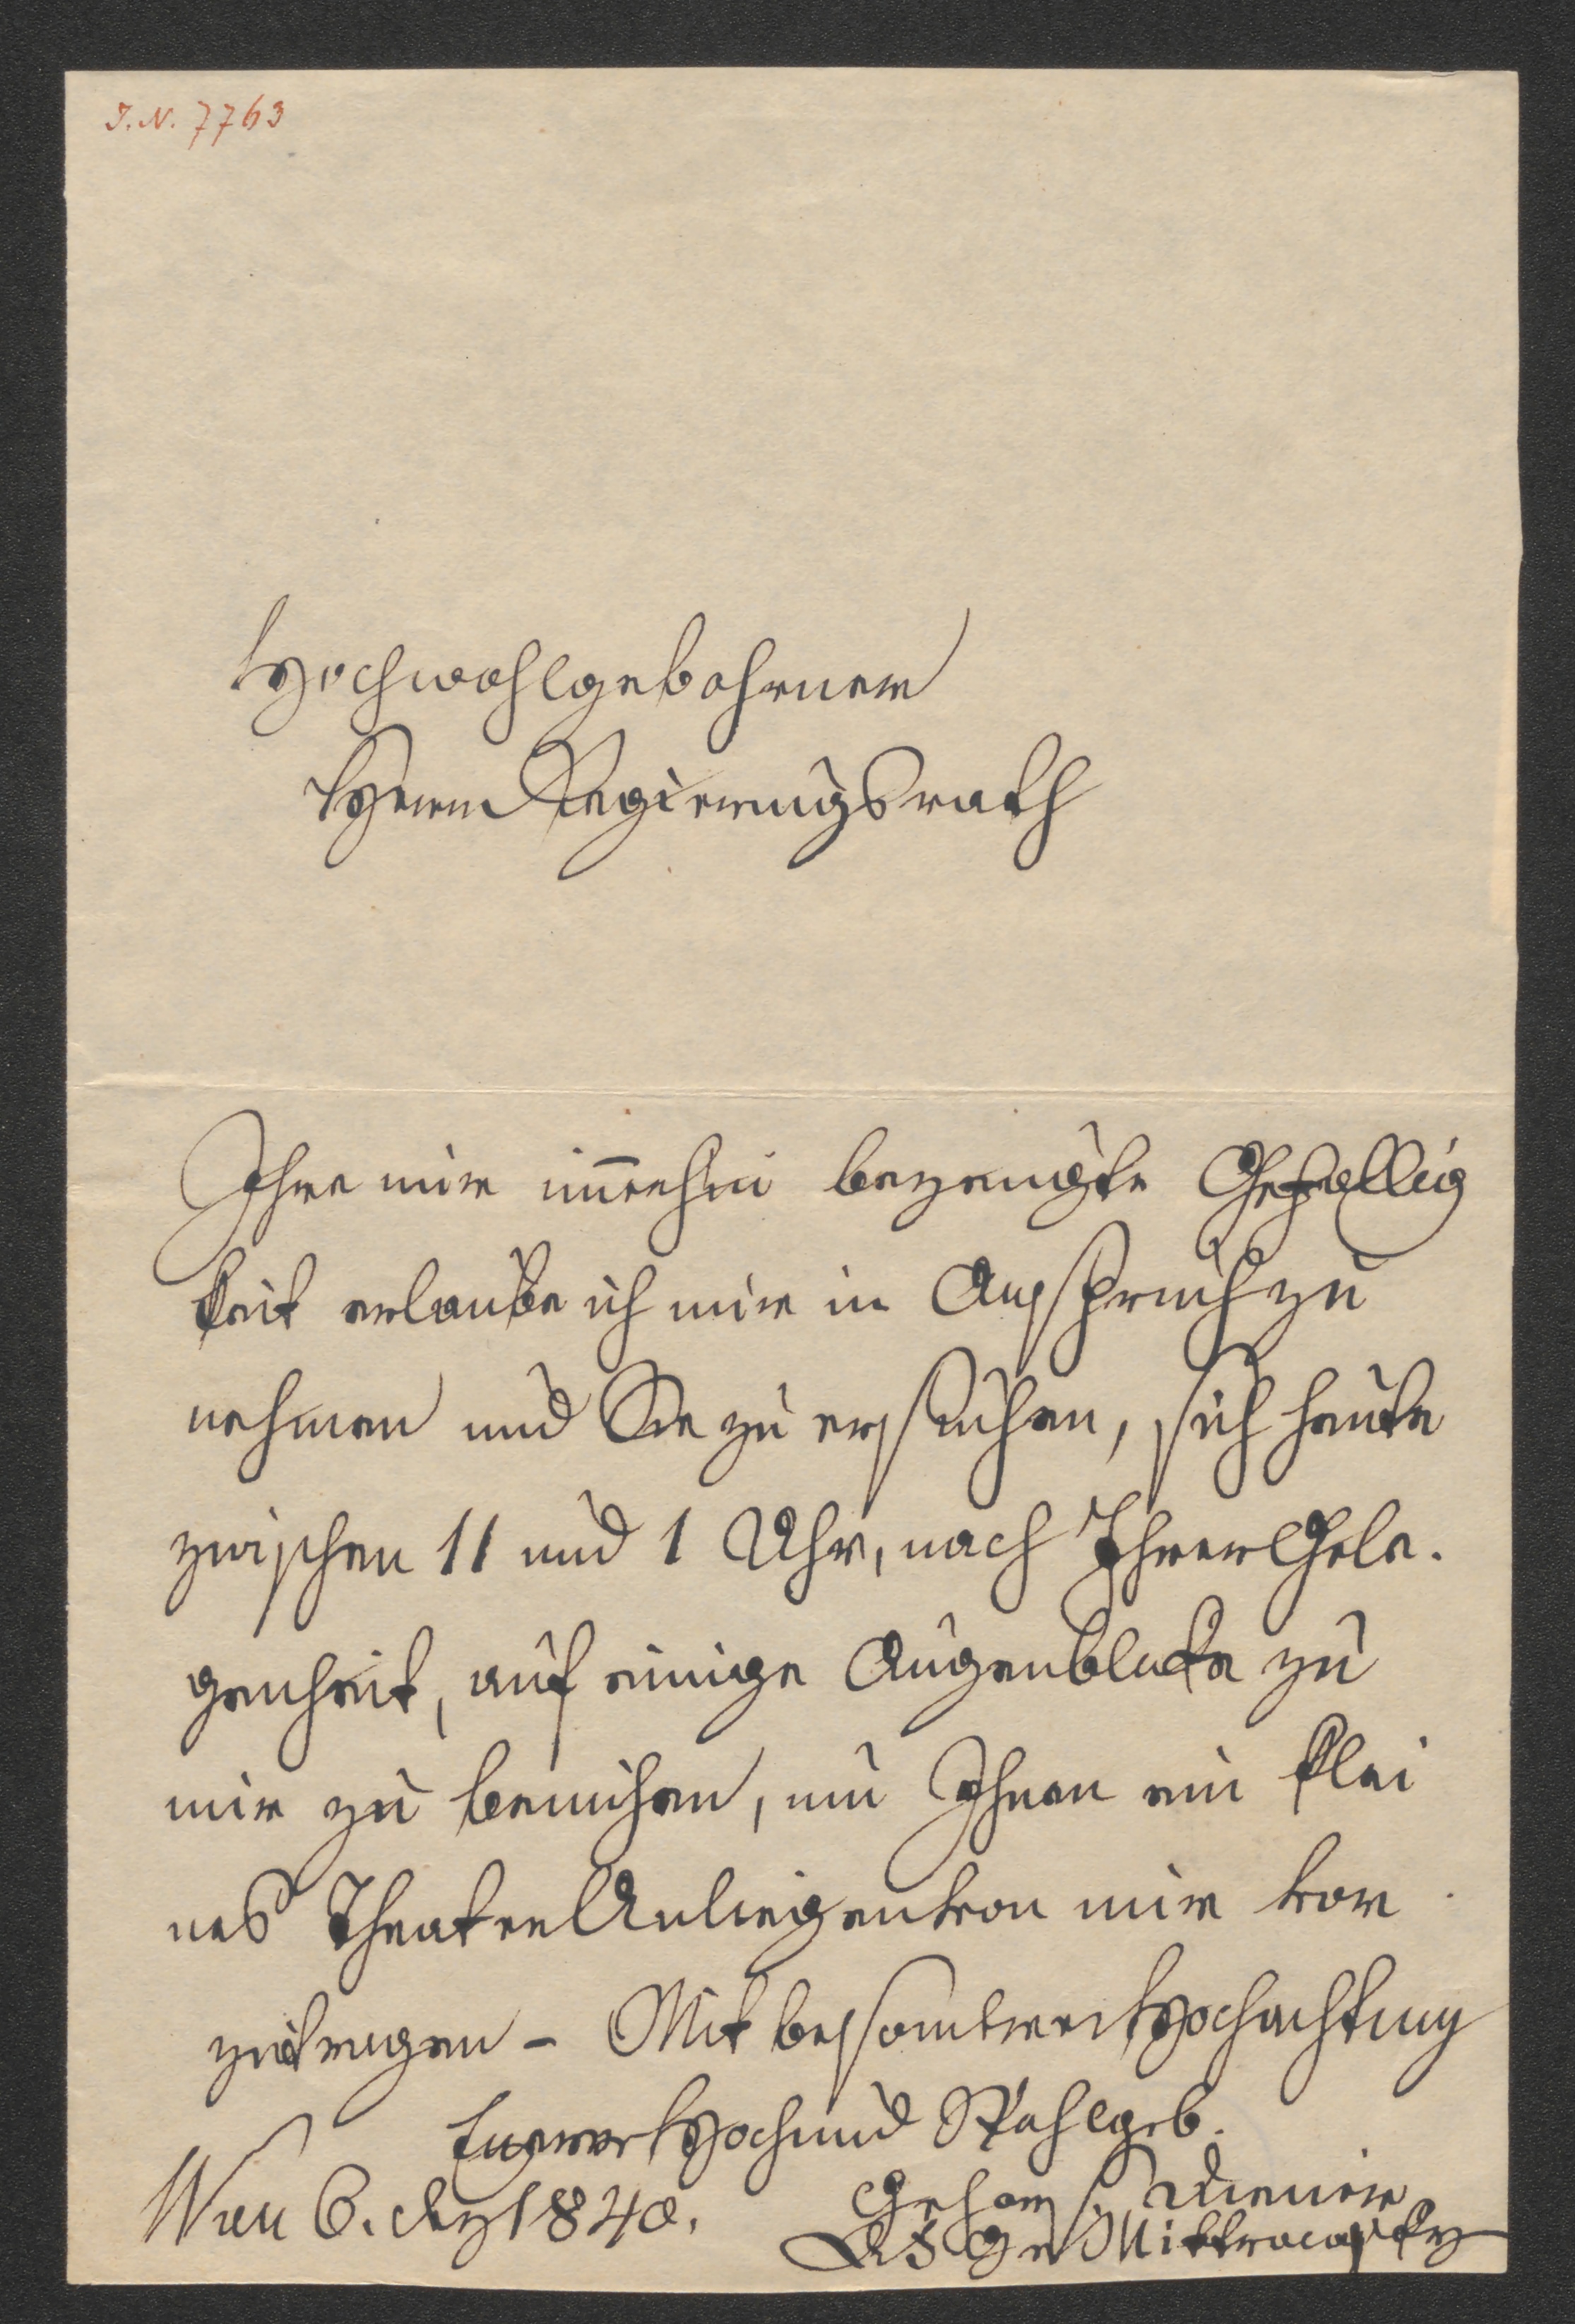 I. N. 7763
Hochwohlgebohrner
Herr Regierungsrath
Ihre mir immerhin bezeugte Gefällig
keit erlaube ich mir in Anspruch zu
nehmen und Sie zu ersuchen, sich heute
zwischen 11 und 1 Uhr, nach Ihrer Gele-
genheit, auf einige Augenblicke zu
mir zu bemühen, um Ihnen ein klei
nes Theater Anliegen von mir vor
zutragen – Mit besonderer Hochachtung
Euerer Hoch und Wohlgeb.
Wien 6. 1840. Gehors. Diener
Gr Mittrowsky